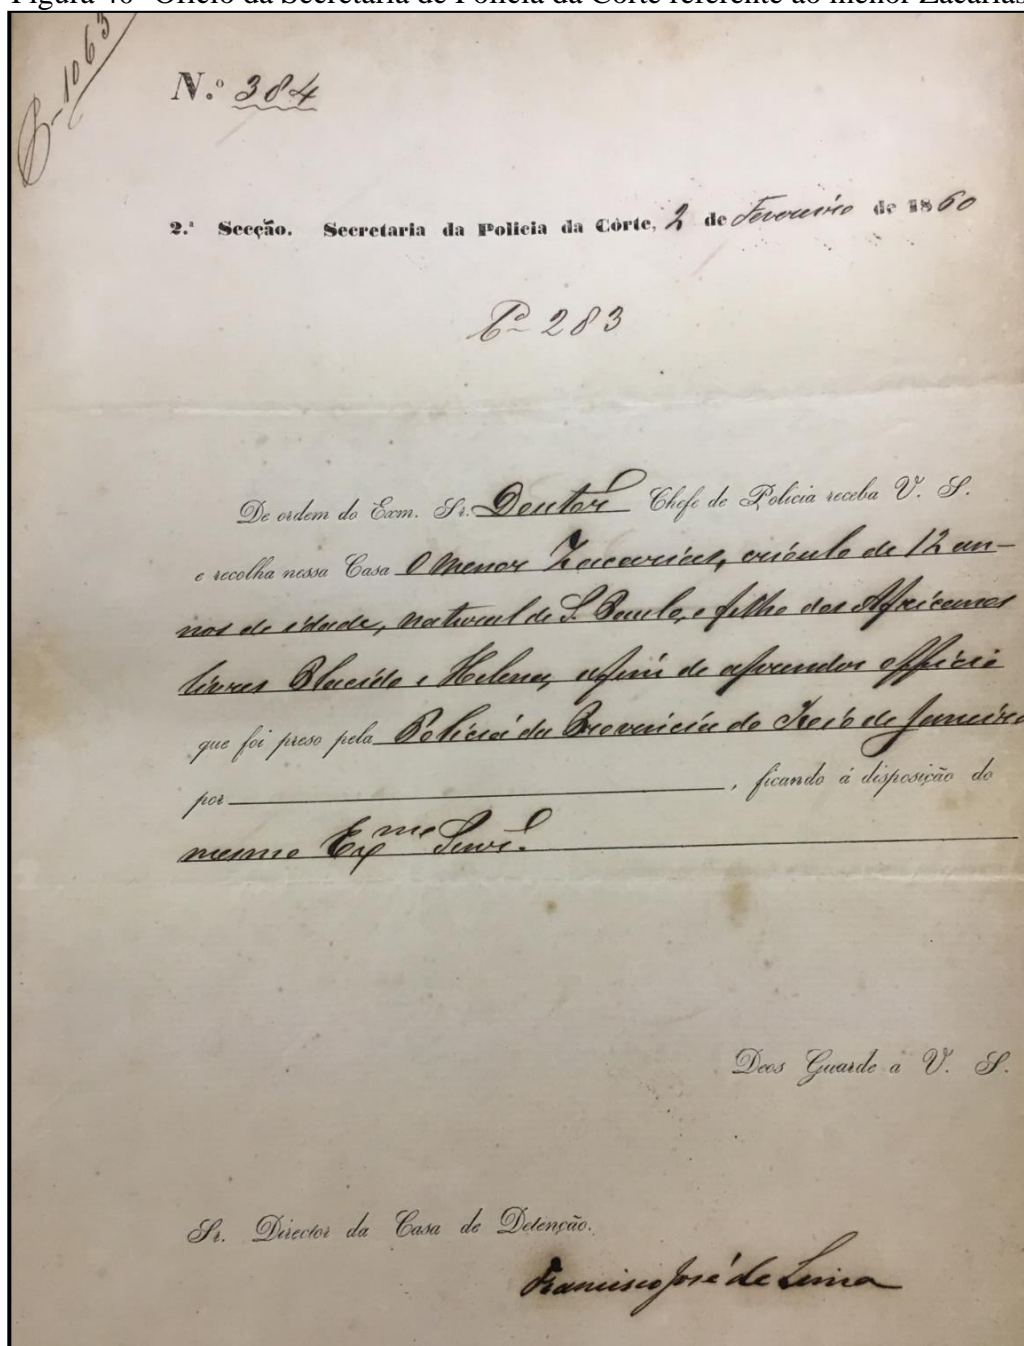 Figura 40- Ofício da Secretaria de Polícia da Corte referente ao menor Zacarias
B-1063
N.º 384
2.ª Secção. Secretaria da Policia da Côrte, 2 de Fevereiro de 1860
283
De ordem do Exm. Sr. Doutor Chefe de Policia receba V. S.
e recolha nessa Casa O menor Zacarias, crioulo de 12 an-
nos de idade, natural de S. Paulo, e filho dos Africanos
livres Placido e Helena, afim de aprender officio
que foi preso pela Policia da Provincia do Rio de Janeiro
por , ficando á disposição do
mesmo Exmo Senr.
Deos Guarde a V. S.
Sr. Director da Casa de Detenção.
Francisco José de Lima